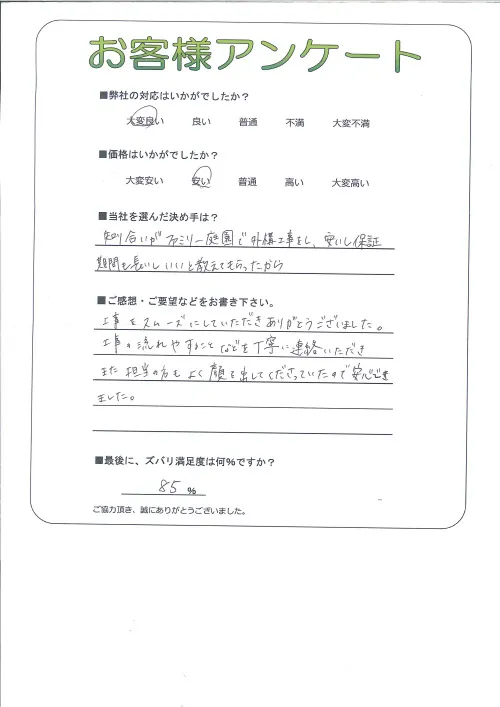 お客様アンケート
■弊社の対応はいかがでしたか？
大変良い 良い 普通 不満 大変不満
■価格はいかがでしたか？
大変安い 安い 普通 高い 大変高い
■当社を選んだ決め手は？
知り合いがファミリー庭園で外構工事をし、安いし保証
期間も長いしいいと教えてもらったから
■ご感想・ご要望などをお書き下さい。
工事をスムーズにしていただきありがとうございました。
工事の流れやすることなどを丁寧に連絡いただき
また担当の方もよく顔を出してくださっていたので安心でき
ました。
■最後に、ズバリ満足度は何%ですか？
85 %
ご協力頂き、誠にありがとうございました。